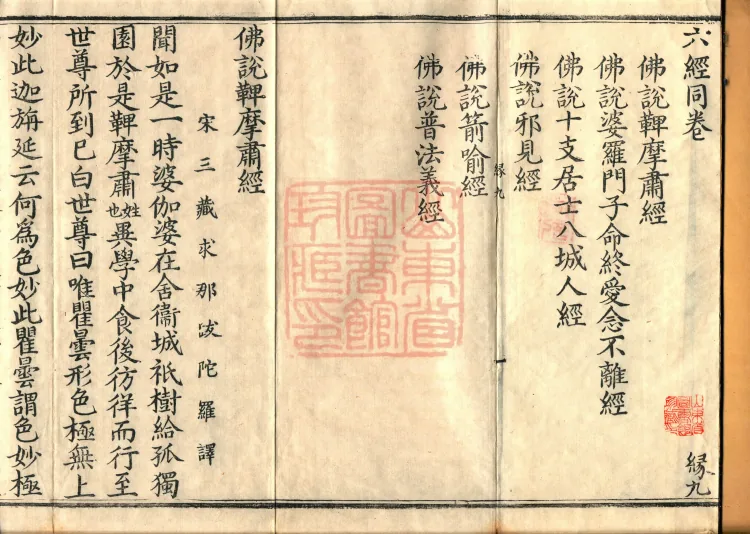 六經同卷
縁九
佛說鞞摩肅經
佛說婆羅門子命終愛念不離經
佛說十支居士八城人經
佛說邪見經
縁九
佛說箭喻經
佛說普法義經
山東省圖書館
佛說鞞摩肅經
宋三藏求那䟦陀羅譯
聞如是一時婆伽婆在舍衞城祇樹給孤獨
園於是鞞摩肅姓也異學中食後彷徉而行至
世尊所到已白世尊曰唯瞿曇形色極無上
妙此迦旃延云何為色妙此瞿曇謂色妙極